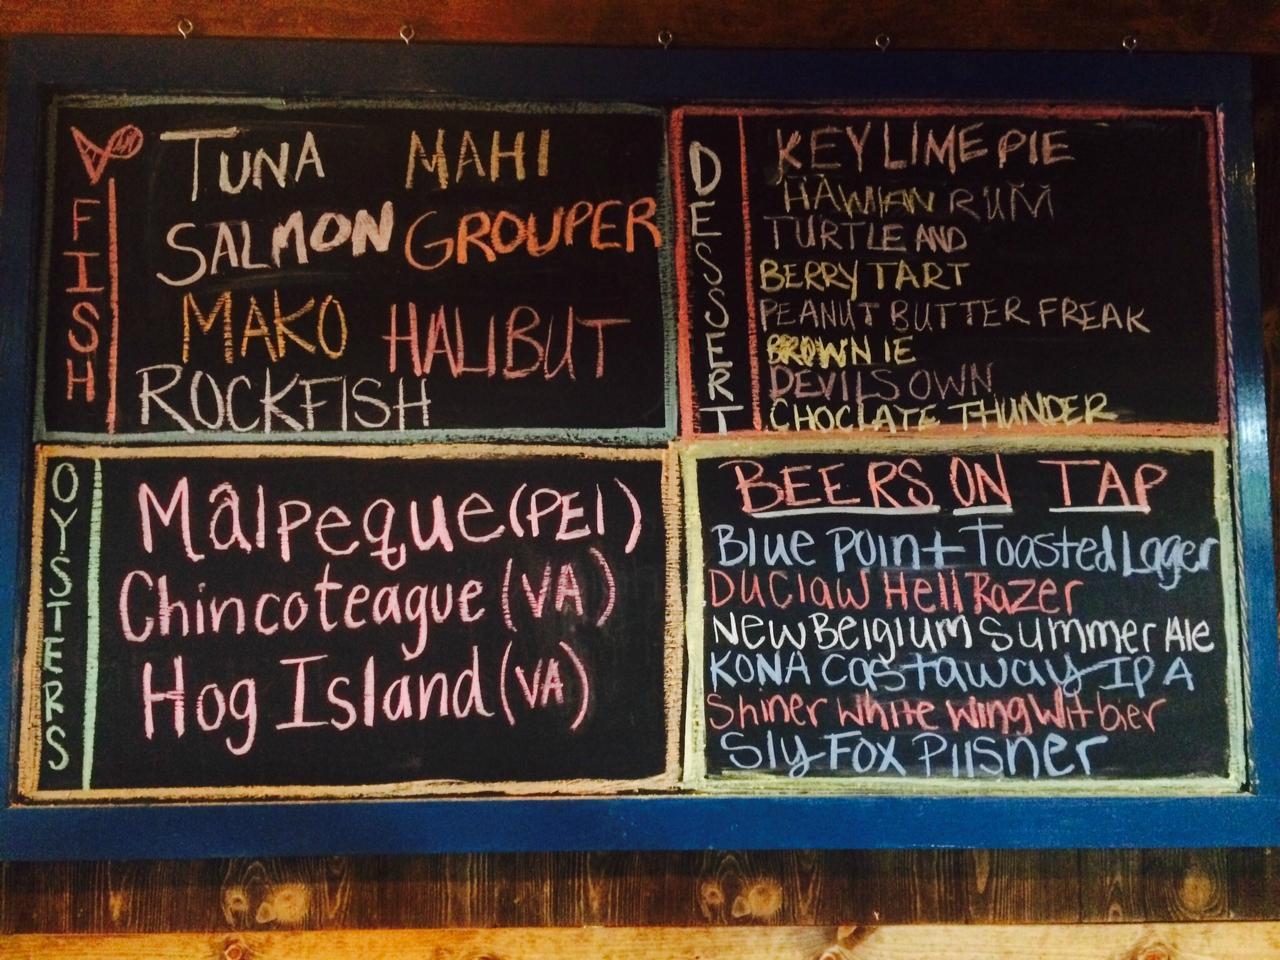 FISH
TUNA MAHI
SALMON GROUPER
MAKO HALIBUT
ROCKFISH
DESSERT
KEY LIME PIE
HAWIAN RUM
TURTLE AND
BERRY TART
PEANUT BUTTER FREAK
BROWNIE
DEVILS OWN
CHOCLATE THUNDER
OYSTERS
Malpeque (PEI)
Chincoteague (VA)
Hog Island (VA)
BEERS ON TAP
Blue Point Toasted Lager
DuClaw Hell Razer
New Belgium Summer Ale
KONA Castaway IPA
Shiner White Wing Witbier
Sly Fox Pilsner